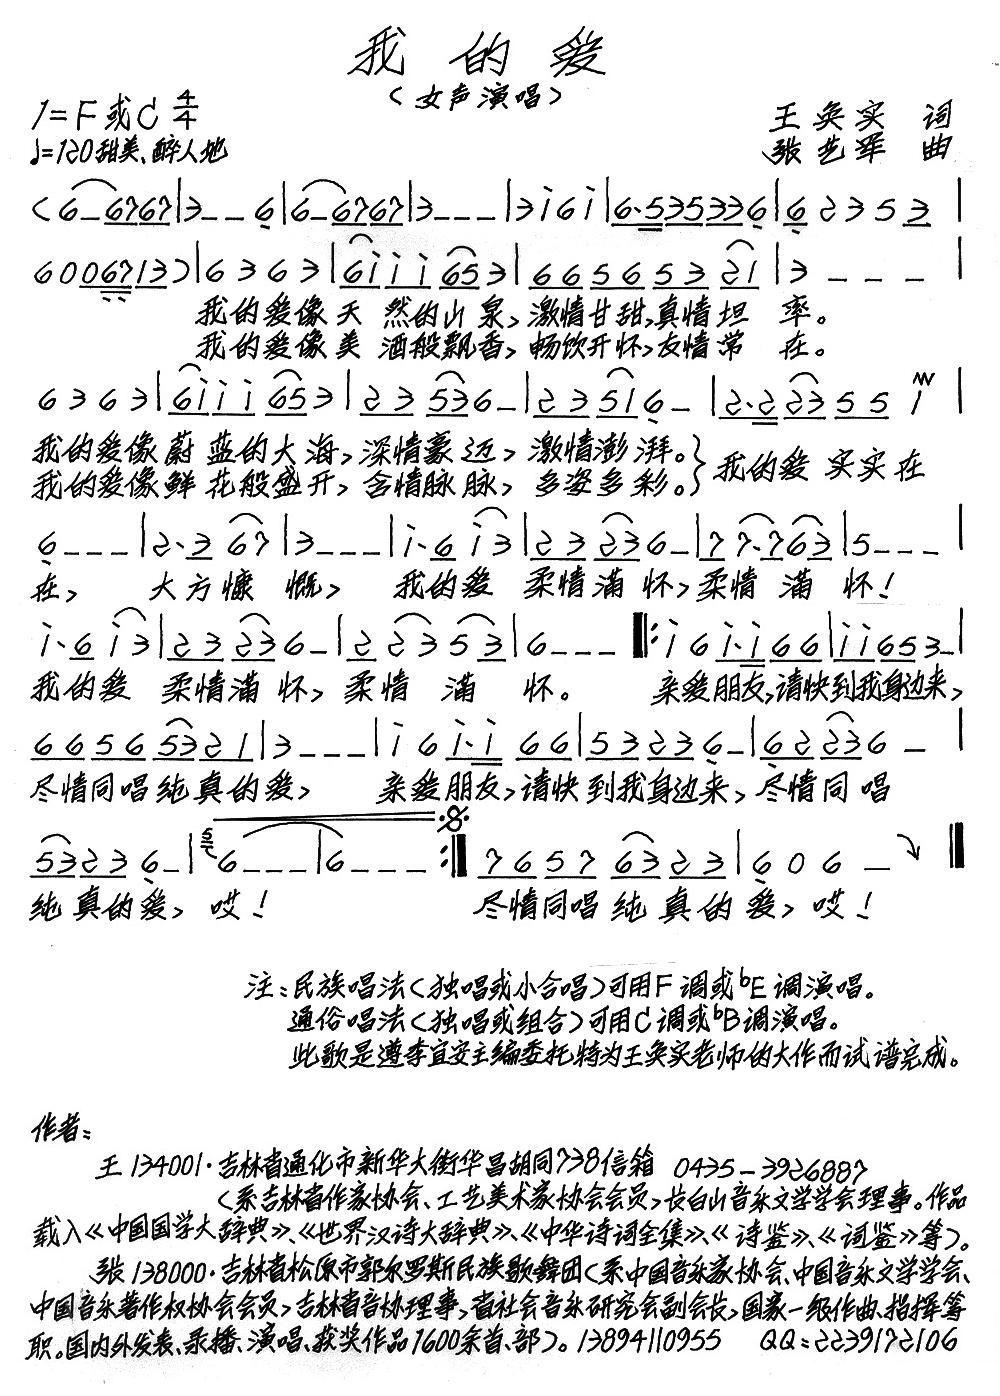 我的爱
(女声演唱)
1=F或C 4/4
♩=120甜美、醉人地
王奂实 词
张艺军 曲
(6–6767|3––6|6–6767|3–––|3i6i|6·535336|62353|
6006713)|6363|6iii653|66565321|3–––|
我的爱像天然的山泉,激情甘甜,真情坦率。
我的爱像美酒般飘香,畅饮开怀,友情常在。
6363|6iii653|23536–|23516–|2·22355i|
我的爱像蔚蓝的大海,深情豪迈,激情澎湃。}我的爱实实在
我的爱像鲜花般盛开,含情脉脉,多姿多彩。
6–––|2·367|3–––|i·6i3|23236–|77·763|5–––|
在, 大方慷慨, 我的爱柔情满怀,柔情满怀!
i·6i3|23236–|22353|6–––‖:i6i·i66|ii653–|
我的爱柔情满怀,柔情满怀。 亲爱朋友,请快到我身边来,
66565321|3–––|i6i·i66|53236–|62236–|
尽情同唱纯真的爱, 亲爱朋友,请快到我身边来,尽情同唱
53236–|6–––|6–––:‖7657 6323|606–‖
纯真的爱,哎! 尽情同唱纯真的爱,哎!
注:民族唱法(独唱或小合唱)可用F调或bE调演唱。
通俗唱法(独唱或组合)可用C调或bB调演唱。
此歌是遵李宜安主编委托特为王奂实老师的大作而试谱完成。
作者:
王134001·吉林省通化市新华大街华昌胡同738信箱 0435–3926887
(系吉林省作家协会、工艺美术家协会会员,长白山音乐文学学会理事。作品
载入《中国国学大辞典》、《世界汉诗大辞典》、《中华诗词全集》、《诗鉴》、《词鉴》等)。
张138000·吉林省松原市郭尔罗斯民族歌舞团(系中国音乐家协会、中国音乐文学学会、
中国音乐著作权协会会员,吉林省音协理事,省社会音乐研究会副会长,国家一级作曲、指挥等
职。国内外发表、录播、演唱、获奖作品1600余首、部)。13894110955 QQ:2239172106